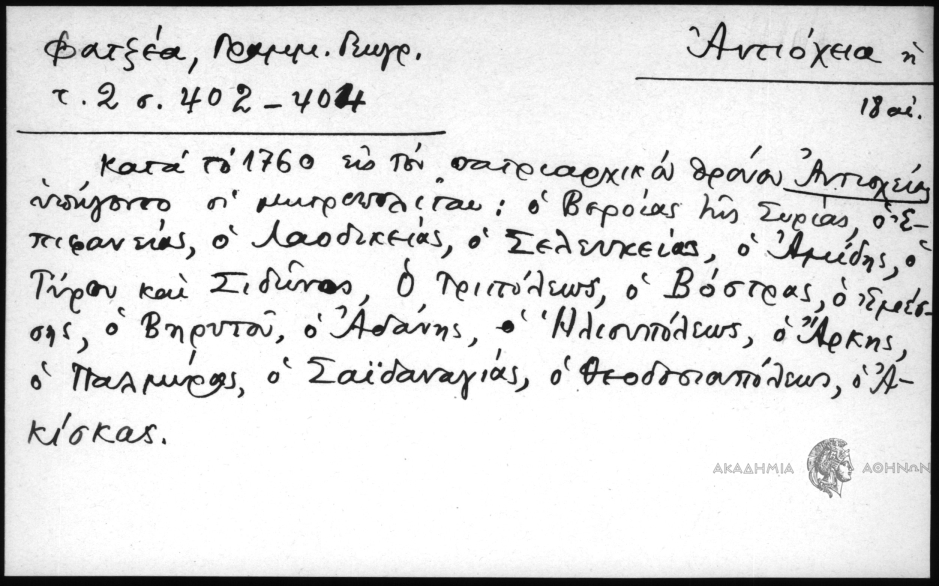 Φατζέα, Γραμμ. Γεωγρ.
τ. 2 σ. 402 – 404
Ἀντιόχεια ἡ
18 αἰ.
κατά τό 1760 εἰς τόν πατριαρχικόν θρόνον Ἀντιοχείας
ὑπήγοντο οἱ μητροπολῖται: ὁ Βεροίας τῆς Συρίας, ὁ Ἐ-
πιφανείας, ὁ Λαοδικείας, ὁ Σελευκείας, ὁ Ἀμίδης, ὁ
Τύρου καὶ Σιδῶνος, Ὁ Τριπόλεως, ὁ Βόστρας, ὁ Ἐμέσ-
σης, ὁ Βηρυτοῦ, ὁ Ἀδάνης, ὁ Ἡλιουπόλεως, ὁ Ἄρκης,
ὁ Παλμύρας, ὁ Σαϊδαναγιάς, ὁ Θεοδοσιαπόλεως, ὁ Ἀ-
κίσκας.
ΑΚΑΔΗΜΙΑ ΑΘΗΝΩΝ